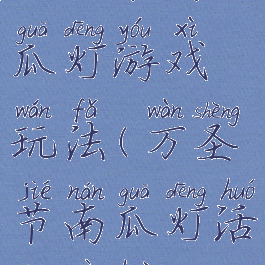 guā dēng yóu xì
瓜灯游戏
wán fǎ wàn shèng
玩法(万圣
jié nán guā dēng huó
节南瓜灯话